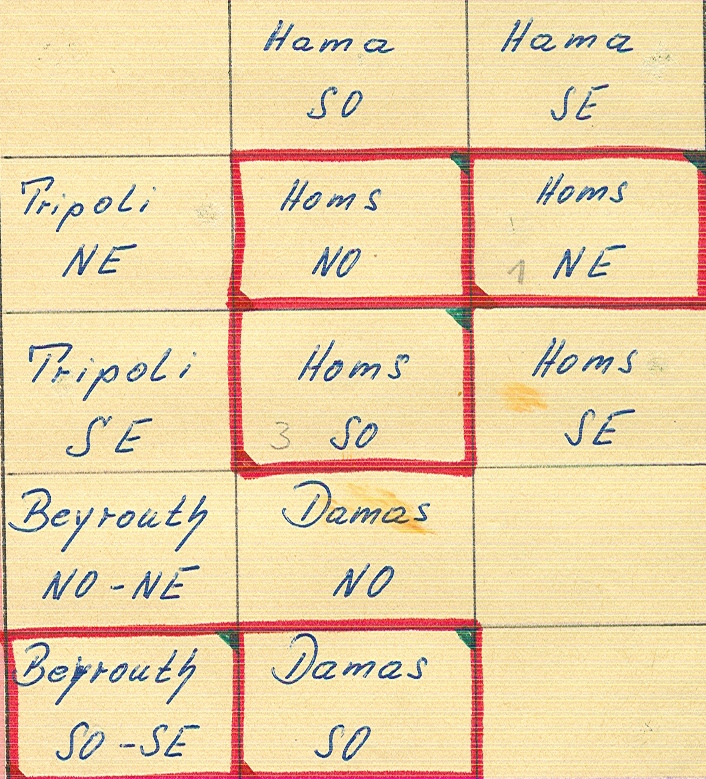 Hama Hama
SO SE
Tripoli Homs Homs
NE NO 1 NE
Tripoli Homs Homs
SE 3 SO SE
Beyrouth Damas
NO-NE NO
Beyrouth Damas
SO-SE SO